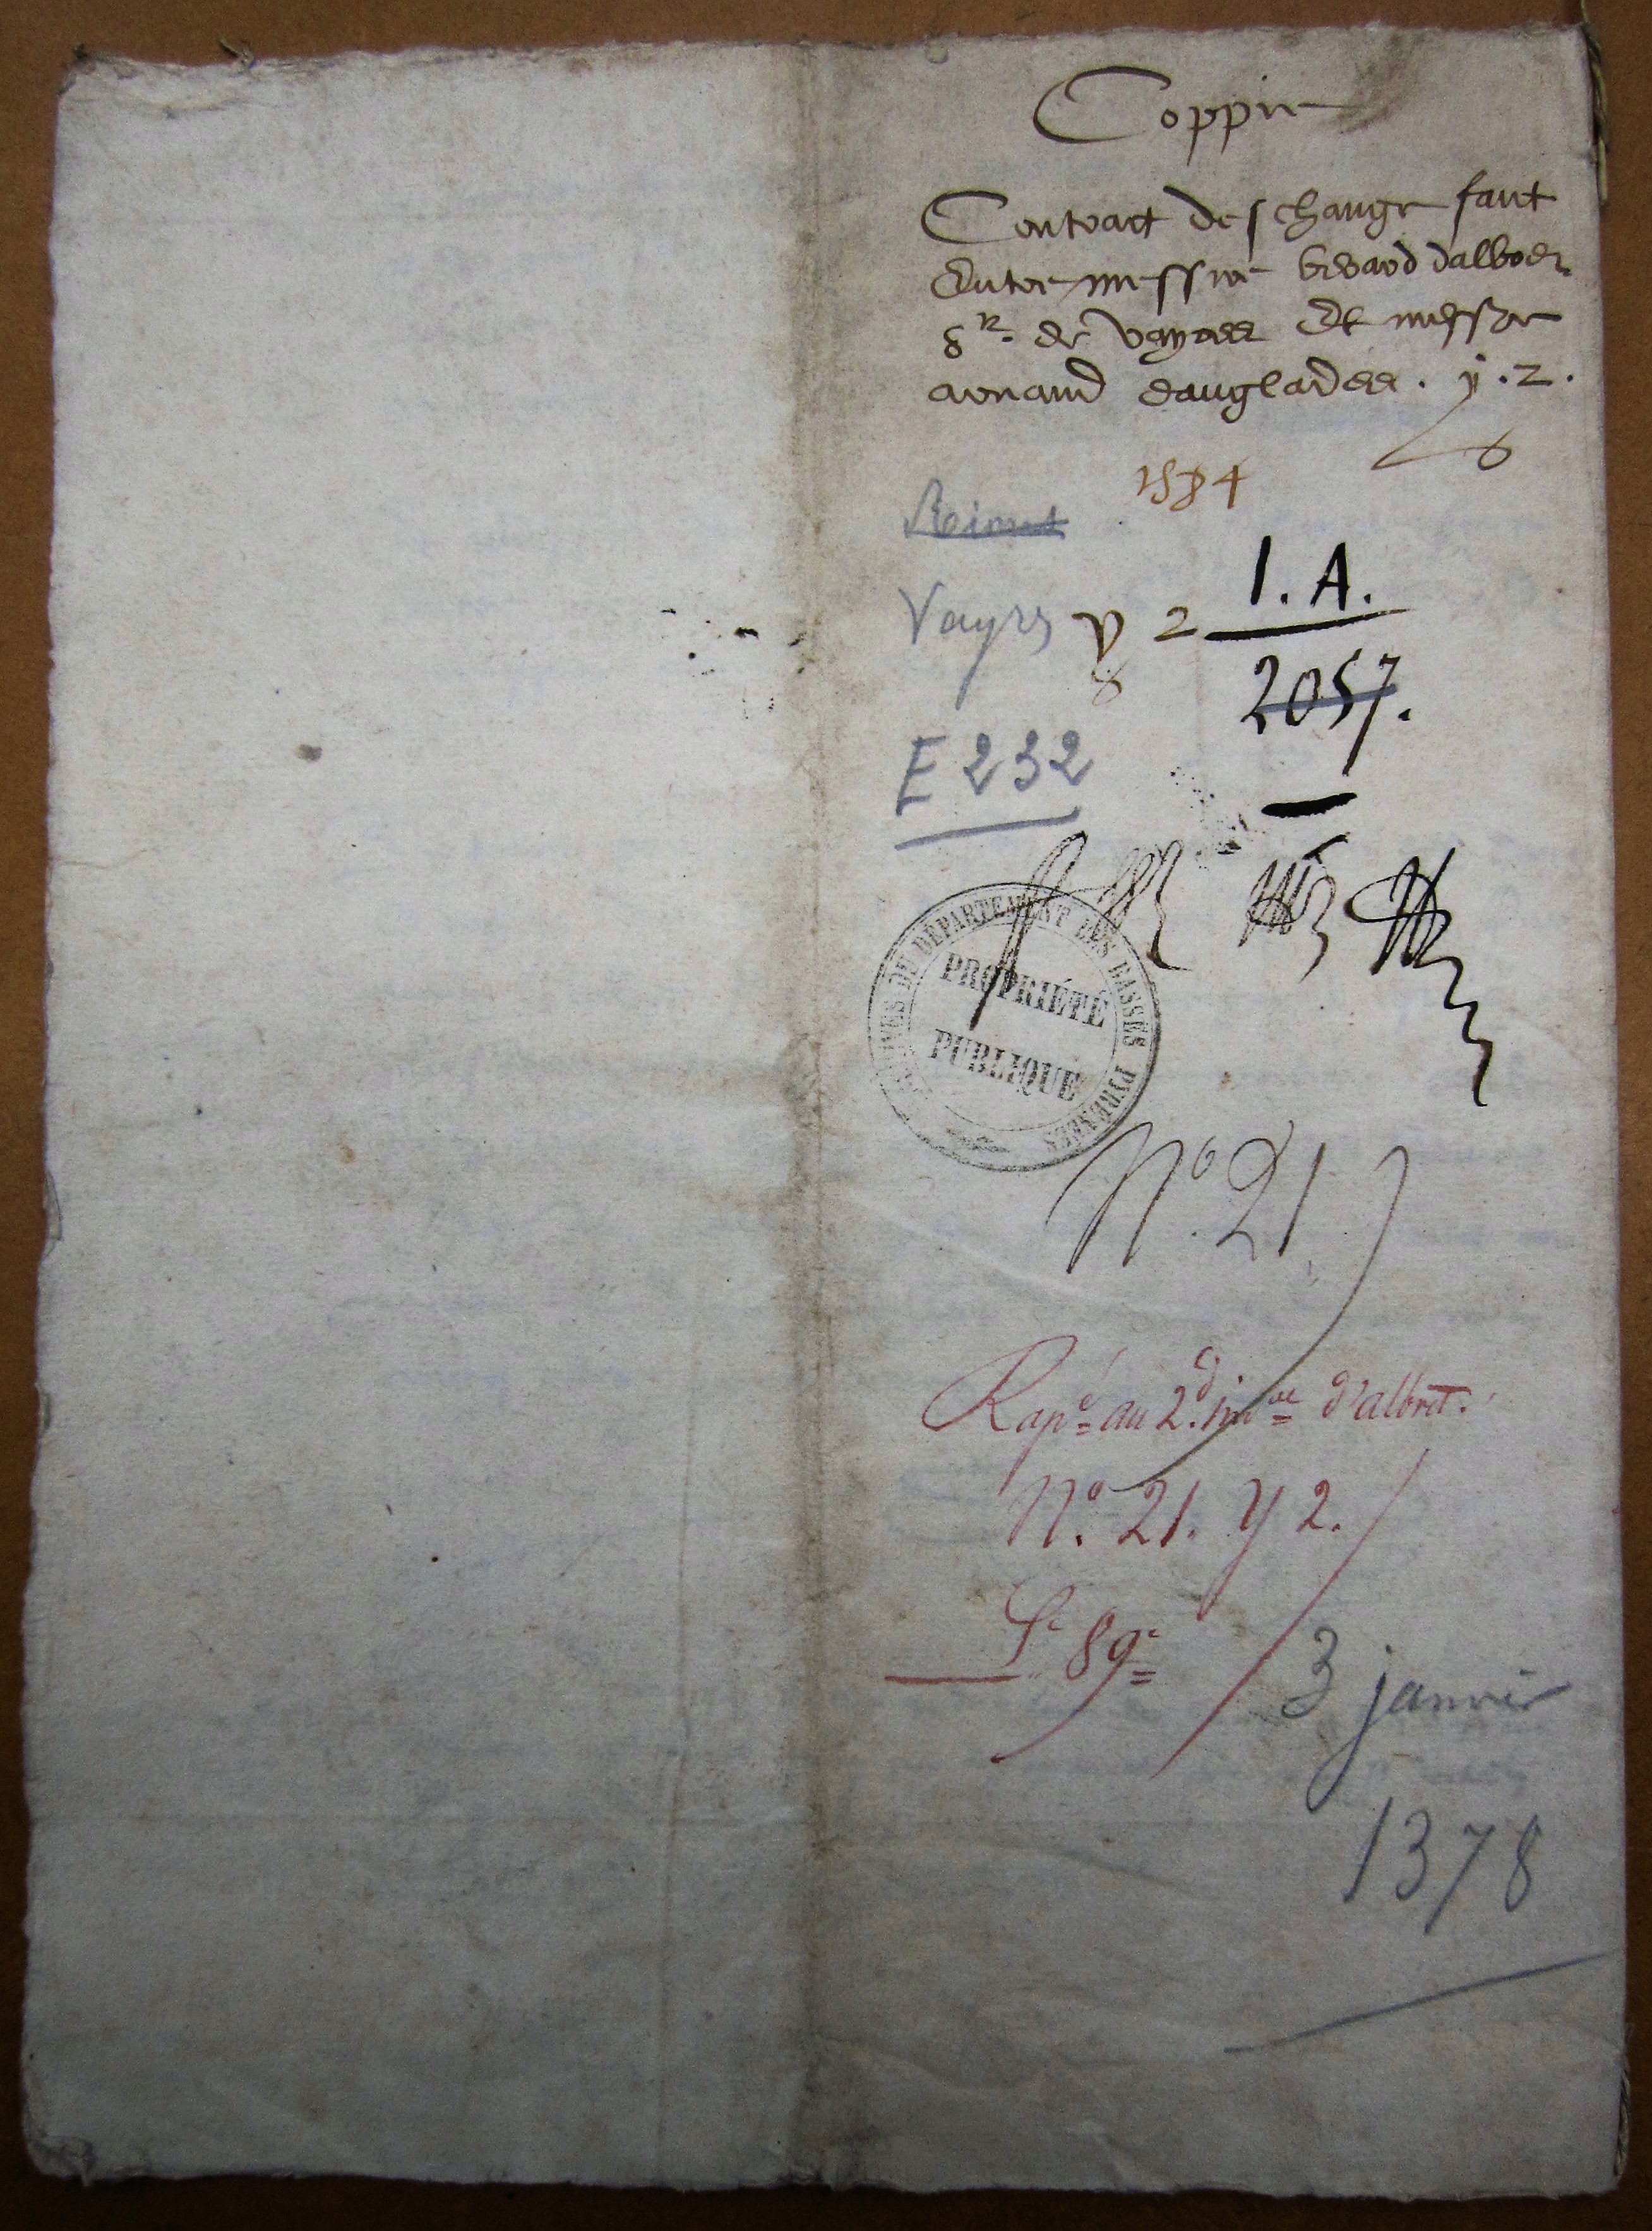 Coppie
Contract deschange faict
Entre messire berard dalbret
Sr. de vayres Et messire
arnaud danglades . y . 2 .
1584
Vayres y 2 I. A.
2057.
E 232
ARCHIVES DU DÉPARTEMENT DES BASSES PYRÉNÉES
PROPRIÉTÉ
PUBLIQUE
No. 21.
Rapé au 2d. invre d'albret.
No. 21. y 2.
Le 89e
3 janvier
1378